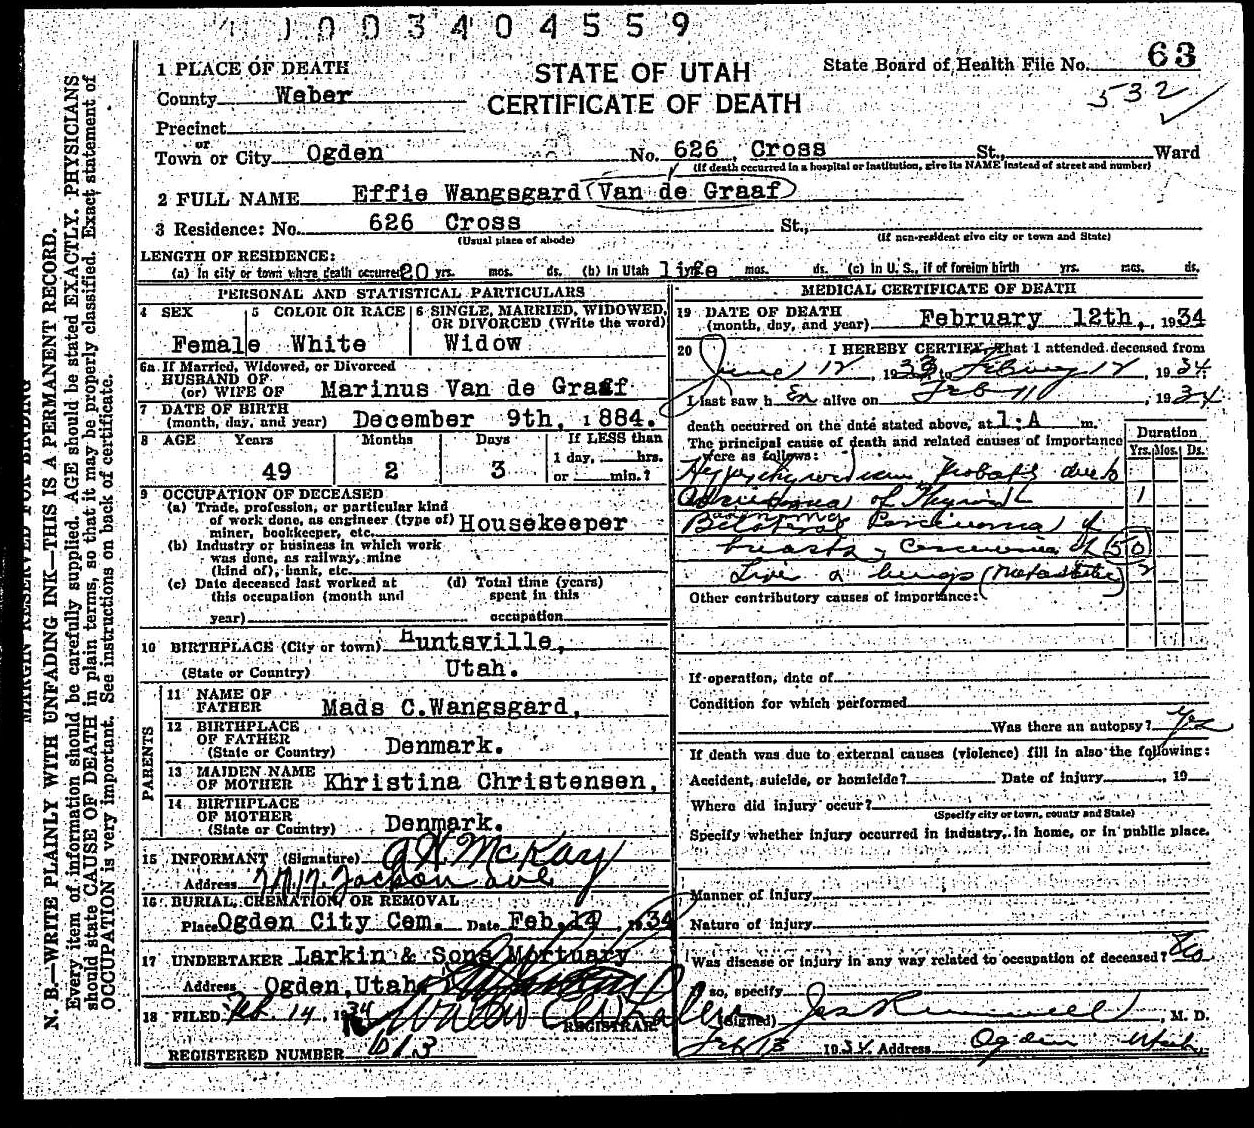 1003404559
1 PLACE OF DEATH
STATE OF UTAH
CERTIFICATE OF DEATH
State Board of Health File No. 63
532
County Weber
Precinct
or
Town or City Ogden No. 626 Cross St., Ward
(If death occurred in a hospital or institution, give its NAME instead of street and number)
2 FULL NAME Effie Wangsgard (Van de Graaf)
3 Residence: No. 626 Cross St.,
(Usual place of abode) (If non-resident give city or town and State)
LENGTH OF RESIDENCE:
(a) In city or town where death occurred 20 yrs. mos. ds. (b) In Utah life mos. ds. (c) In U. S., if of foreign birth yrs. mos. ds.
PERSONAL AND STATISTICAL PARTICULARS
4 SEX 5 COLOR OR RACE 6 SINGLE, MARRIED, WIDOWED, OR DIVORCED (Write the word)
Female White Widow
6a If Married, Widowed, or Divorced
HUSBAND OF
(or) WIFE OF Marinus Van de Graaf
7 DATE OF BIRTH
(month, day, and year) December 9th, 1884.
8 AGE Years Months Days If LESS than
1 day, hrs.
49 2 3 or min.?
9 OCCUPATION OF DECEASED
(a) Trade, profession, or particular kind
of work done, as engineer (type of)
miner, bookkeeper, etc. Housekeeper
(b) Industry or business in which work
was done, as railway, mine
(kind of), bank, etc.
(c) Date deceased last worked at
this occupation (month and
year)
(d) Total time (years)
spent in this
occupation
10 BIRTHPLACE (City or town) Huntsville,
(State or Country) Utah.
PARENTS
11 NAME OF
FATHER Mads C.Wangsgard,
12 BIRTHPLACE
OF FATHER
(State or Country) Denmark.
13 MAIDEN NAME
OF MOTHER Khristina Christensen,
14 BIRTHPLACE
OF MOTHER
(State or Country) Denmark.
15 INFORMANT (Signature) McKay
Address Jackson ave
16 BURIAL, CREMATION, OR REMOVAL
Place Ogden City Cem. Date Feb. 14 1934
17 UNDERTAKER Larkin & Sons Mortuary
Address Ogden,Utah
18 FILED Feb. 14, 1934
REGISTRAR
REGISTERED NUMBER
MEDICAL CERTIFICATE OF DEATH
19 DATE OF DEATH
(month, day, and year) February 12th, 1934
20 I HEREBY CERTIFY, That I attended deceased from
June 12, 1933 to February 12, 1934
I last saw h er alive on Feb 11, 1934
death occurred on the date stated above, at 1:A m.
The principal cause of death and related causes of importance
were as follows:
Duration
Yrs. Mos. Ds.
of 1
Bilateral Carcinoma of
breasts, Carcinoma of 50
Liver & lungs (Metastatic)
Other contributory causes of importance:
If operation, date of
Condition for which performed
Was there an autopsy? Yes
If death was due to external causes (violence) fill in also the following:
Accident, suicide, or homicide? Date of injury , 19
Where did injury occur?
(Specify city or town, county and State)
Specify whether injury occurred in industry, in home, or in public place.
Manner of injury
Nature of injury
Was disease or injury in any way related to occupation of deceased? No
If so, specify
(Signed) , M. D.
Feb 13 1934 Address Ogden Utah
MARGIN RESERVED FOR BINDING
N. B.—WRITE PLAINLY WITH UNFADING INK—THIS IS A PERMANENT RECORD.
Every item of information should be carefully supplied. AGE should be stated EXACTLY. PHYSICIANS
should state CAUSE OF DEATH in plain terms, so that it may be properly classified. Exact statement of
OCCUPATION is very important. See instructions on back of certificate.